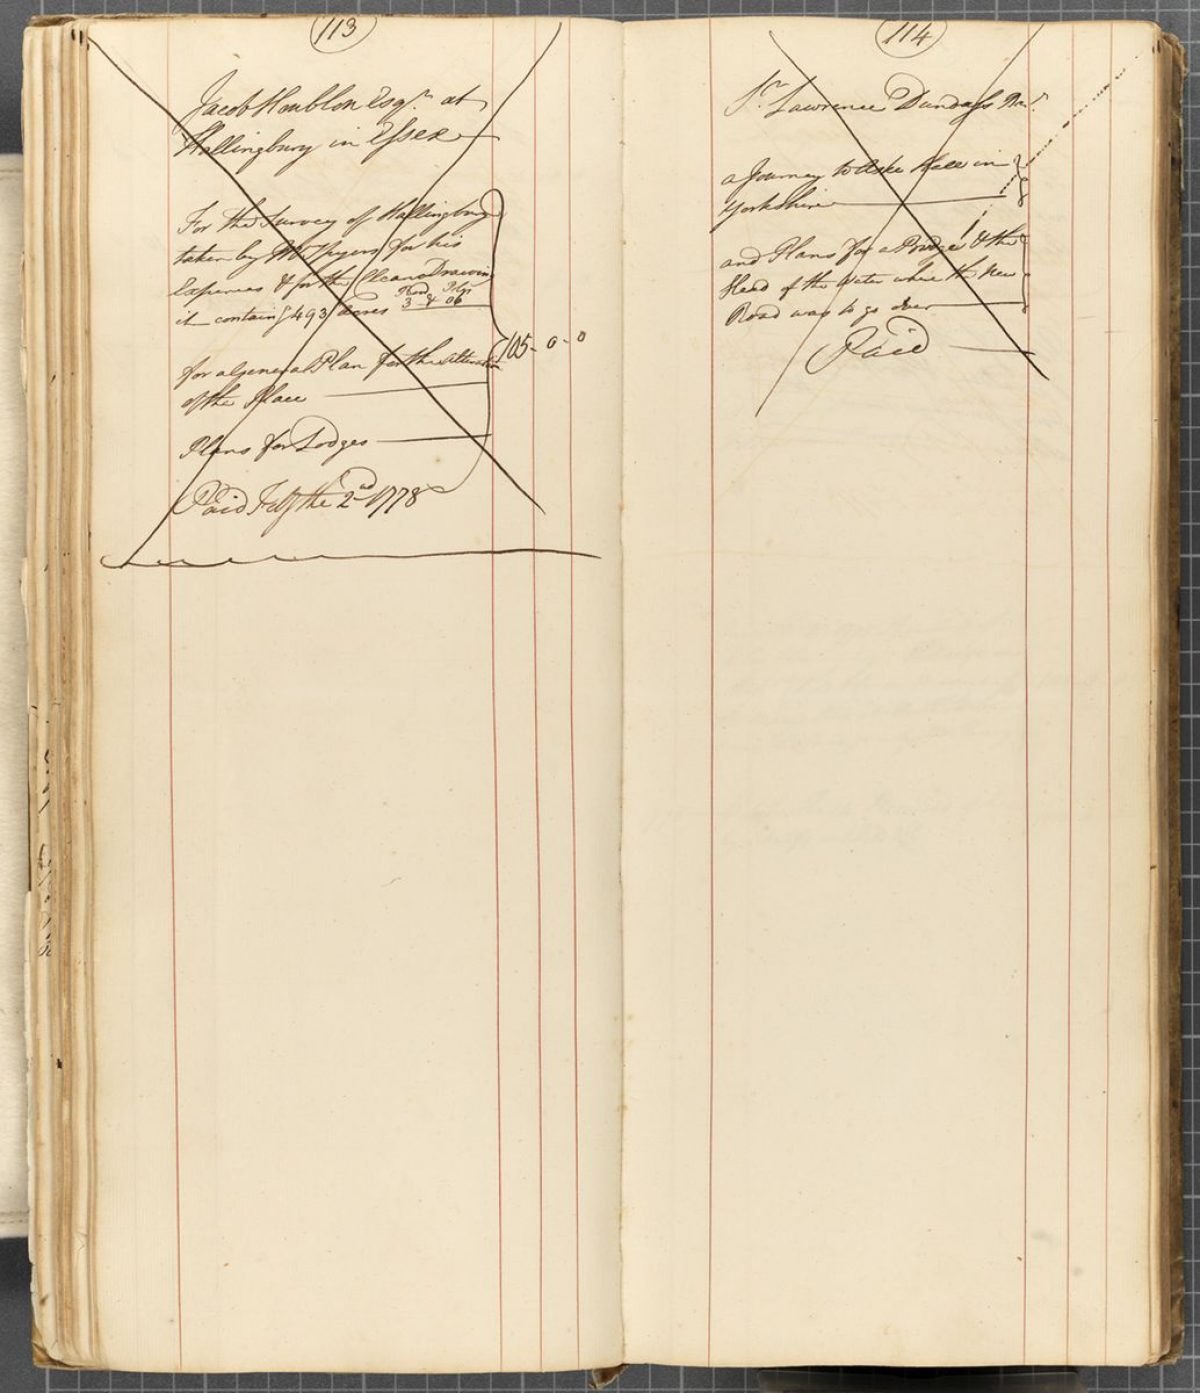 113
Jacob Houblon Esqr. at
Hallingbury in Essex
For the Survey of Hallingbury
taken by Mr Spyers for his
Expences & for the Clean Drawing
Rod Pls
it containg 493 Acres 3 & 06
for a general Plan for the Alteration
of the Place
105 - 0 - 0
Plans for Lodges
Paid Feby the 2nd 1778
114
Sr. Lawrence Dundass Bart.
a Journey to Aske Hall in
Yorkshire
and Plans for a Bridge & the
Head of the Water where the New
Road was to go over
Paid